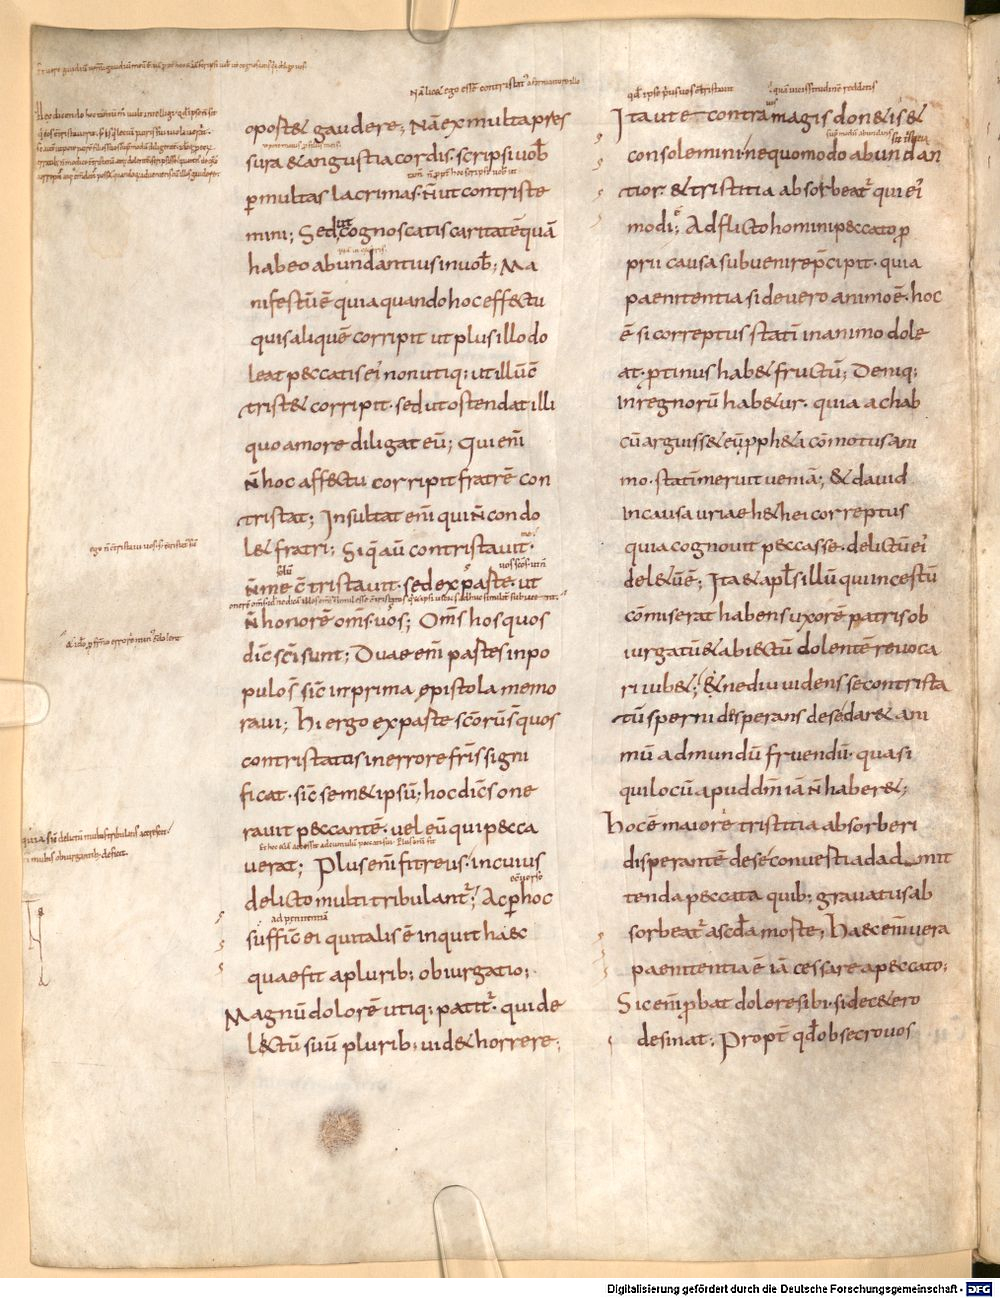 oposte& gaudere; Nā ex multa pres
sura & angustia cordis scripsi uob
p̱ multas lacrimas n̄ ut contriste
mini; Sed ut cognoscatis caritatē quā
habeo abundantius in uob; Ma
nifestū ē quia quando hoc effectu
quis aliquē corripit ut plus illo do
leat peccatis ei non utiq; ut illū c̄
trist& corripit. sed ut ostendat illi
quo amore diligat eū; Qui eni
n̄ hoc affectu corripit fratrē con
tristat; Insultat eni qui n̄ condo
l& fratri; Siq̄ aū contristauit.
n̄ me c̄tristauit. sed ex parte. ut
n̄ honorē om̄s uos; Om̄s hos quos
dic̄ sc̄i sunt; Duae eni partes in po
pulo s̄ sic̄ in prima epistola memo
raui; Hi ergo ex parte sc̄orū s̄ quos
contristatus in errore fr̄is signi
ficat. sic̄ sem& ipsū; hoc dic̄ s one
rauit peccantē. uel eū qui pecca
uerat; Plus eni fit reus. in cuius
delicto multi tribulant; Ac p̱ hoc
suffic̄ ei qui talis ē inquit haec
quae fit a plurib; obiurgatio;
Magnū dolorē utiq; patit. qui de
lectū suū plurib; uid& horrere;
Ita ut e contra magis don&is &
consolemini ne quomodo abundan
tior & tristitia absorbeat qui ei
modi ē; Adflicto homini peccato p̱
prii causa subuenire p̄cipit. quia
paenitentia si de uero animo ē. hoc
ē si correptus statī in animo dole
at. p̱tinus hab& fructū; Deniq;
in regnorū hab&ur. quia achab
cū arguiss& eū pph&a cōmotus ani
mo. statī meruit ueniā; & dauid
in causa uriae h&hei correptus
quia cognouit peccasse. delictū ei
del&ū ē; Ita & apls illū qui incestū
cōmiserat habens uxorē patris ob
iurgatū & abiectū dolentē reuoca
ri iub&; & ne diu uidens se contrista
tū sperni disperans de se dar& ani
mū ad mundū fruendū. quasi
qui locū apud dm̄ iā n̄ haber&;
Hoc ē maiore tristitia absorberi
disperantē de se conuesti ad ad mit
tenda peccata quib; grauatus ab
sorbeat a scda morte; Haec eni uera
paenitentia ē iā cessare a peccato;
Sic eni p̱bat dolore sibi. si de c&ero
desinat; Propt qd obsecro uos
Digitalisierung gefördert durch die Deutsche Forschungsgemeinschaft - DFG